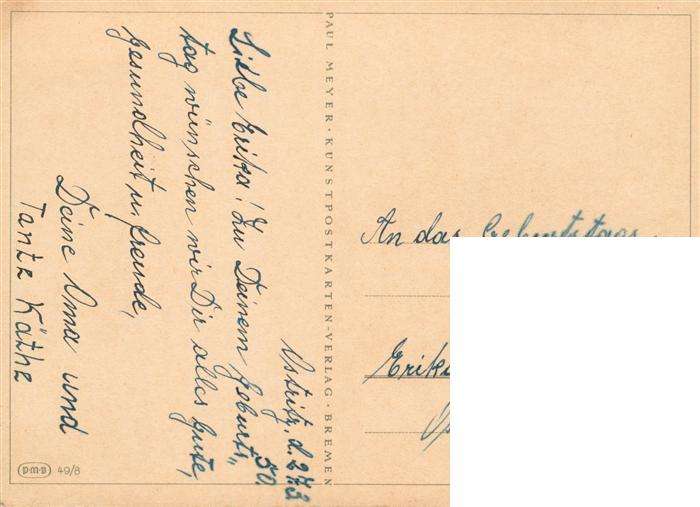 Ostritz, d. 27.3.
50.
Liebe Erika! Zu Deinem Geburts„
tag wünschen wir Dir alles gute,
gesundheit u. freude,
Deine Oma und
Tante Käthe
PAUL MEYER · KUNSTPOSTKARTEN-VERLAG · BREMEN
An das Geburtstags
Erika
p-m-b 49/8